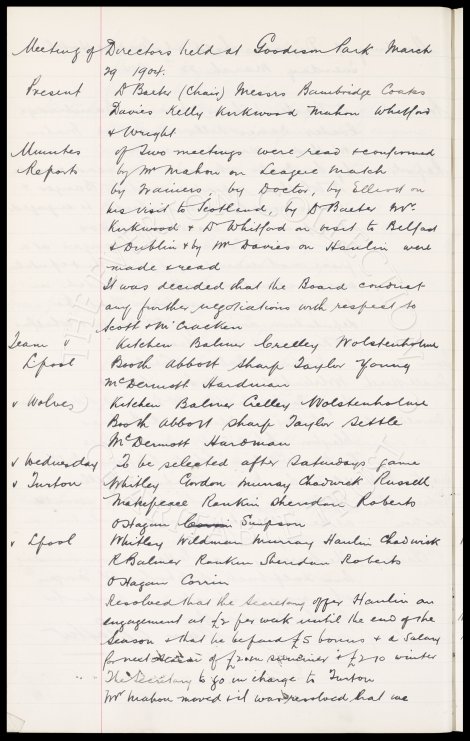 Meeting of Directors held at Goodison Park March
29 1904.
Present Dr Baxter (Chair) Messrs Bainbridge Coates
Davies Kelly Kirkwood Mahon Whitford
& Wright
Minutes of two meetings were read & confirmed
Reports by Mr Mahon on League Match
by Trainers, by Doctor, by Elleray on
his visit to Scotland, by Dr Baxter Mr.
Kirkwood & Dr Whitford on visit to Belfast
& Dublin & by Mr Davies on Hanlin were
made & read
It was decided that the Board conduct
any further negotiations with respect to
Scott & McCracken
Team v Kitchen Balmer Crelley Wolstenholme
Lpool Booth Abbott Sharp Taylor Young
McDermott Hardman
v Wolves Kitchen Balmer Crelley Wolstenholme
Booth Abbott Sharp Taylor Settle
McDermott Hardman
v Wednesday To be selected after Saturdays game
v Turton Whitley Gordon Murray Chadwick Russell
Makepeace Rankin Sheridan Roberts
OHagan Corrin Simpson
v Lpool Whitley Wildman Murray Hanlin Chadwick
R Balmer Rankin Sheridan Roberts
OHagan Corrin
Resolved that the Secretary offer Hanlin an
engagement at £2 per week until the end of the
Season & that he be paid £5 bonus & a Salary
for next of £2 summer & £2-10 winter
The Secretary to go in charge to Turton
Mr Mahon moved & it was resolved that we